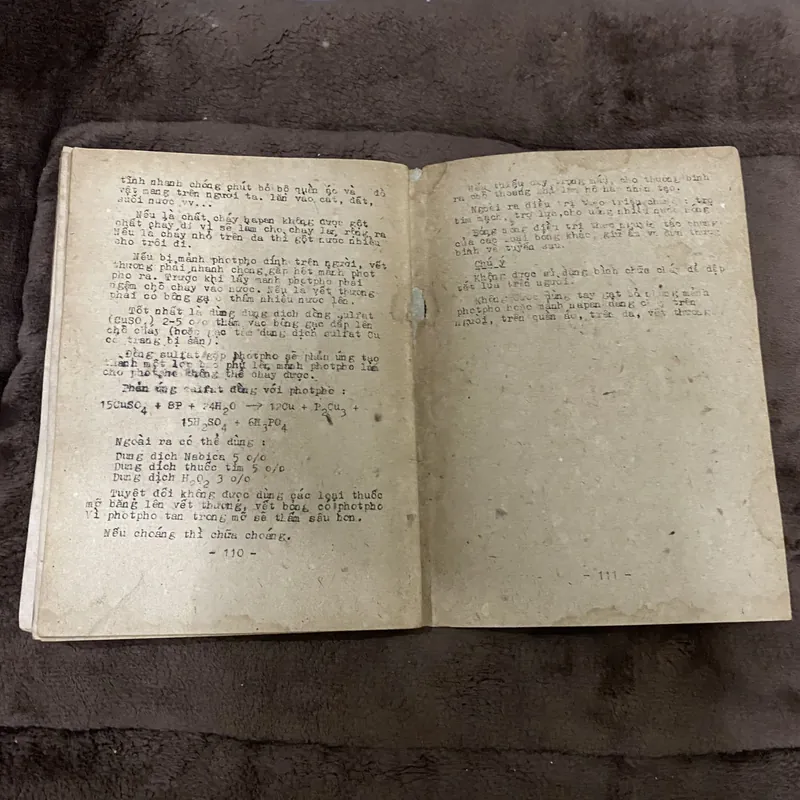 tĩnh nhanh chóng phút bỏ bộ quần áo và đồ
vật mang trên người ta. lăn vào cát, đất,
suối nước vv...
Nếu là chất cháy napan không được gột
chất cháy đi vì sẽ làm cho cháy lan rộng ra
Nếu là cháy nhỏ trên da thì gột nước nhiều
cho trôi đi.
Nếu bị mảnh photpho dính trên người, vết
thương phải nhanh chóng gắp hết mảnh phot
pho ra. Trước khi lấy mảnh photpho phải
ngâm chỗ cháy vào nước. Nếu là vết thương
phải có bông gạc thấm nhiều nước lên.
Tốt nhất là dùng dung dịch đồng sulfat
(CuSO4) 2-5 o/o thấm vào bông gạc đắp lên
chỗ cháy (hoặc gạc tẩm dung dịch sulfat Cu
có trang bị sẵn).
Đồng sulfat gặp photpho sẽ phản ứng tạo
thành một lớp bao phủ lên mảnh photpho làm
cho photpho không thể cháy được.
Phản ứng sulfat đồng với photpho :
15CuSO4 + 8P + 24H2O → 12Cu + P2Cu3 +
15H2SO4 + 6H3PO4
Ngoài ra có thể dùng :
Dung dịch Nabica 5 o/o
Dung dịch thuốc tím 5 o/o
Dung dịch H2O2 3 o/o
Tuyệt đối không được dùng các loại thuốc
mỡ băng lên vết thương, vết bỏng có photpho
Vì photpho tan trong mỡ sẽ thấm sâu hơn.
Nếu choáng thì chữa choáng.
- 110 -
Nếu thiếu dưỡng trong máu, cho thương binh
ra chỗ thoáng khí làm hô hấp nhân tạo.
Ngoài ra điều trị theo triệu chứng : trợ
tim mạch, trợ lực, cho uống nhiều nước nóng
Bỏng nóng điều trị theo nguyên tắc chung
của các loại bỏng khác, giữ ấm và đưa thương
binh về tuyến sau.
Chú ý
Không được sử dụng bình chữa cháy để dập
tắt lửa trên người.
Không được dùng tay gạt bỏ những mảnh
photpho hoặc mảnh napan đang cháy trên
người, trên quần áo, trên da, vết thương
- 111 -